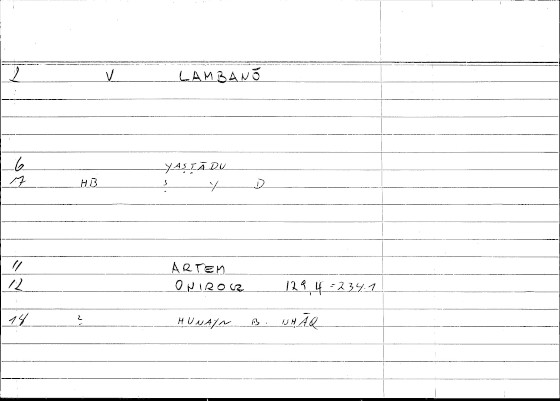 2 V LAMBANŌ
6 YAṢṬĀDU
7 HB Ṣ Y D
11 ARTEM
12 ONIROCR 129,4=234.1
14 2 HUNAYN B.